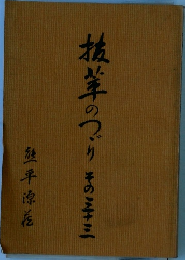 抜萃のつづり その三十三
熊平源蔵